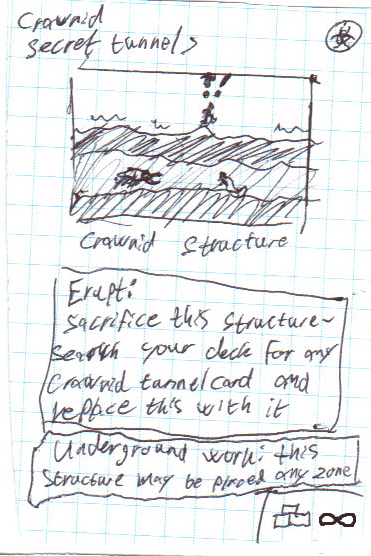 Crownid
secret tunnels
Crownid Structure
Erupt:
sacrifice this structure~
search your deck for any
Crownid tunnel card and
replace this with it
Underground work: this
structure may be placed any zone
∞